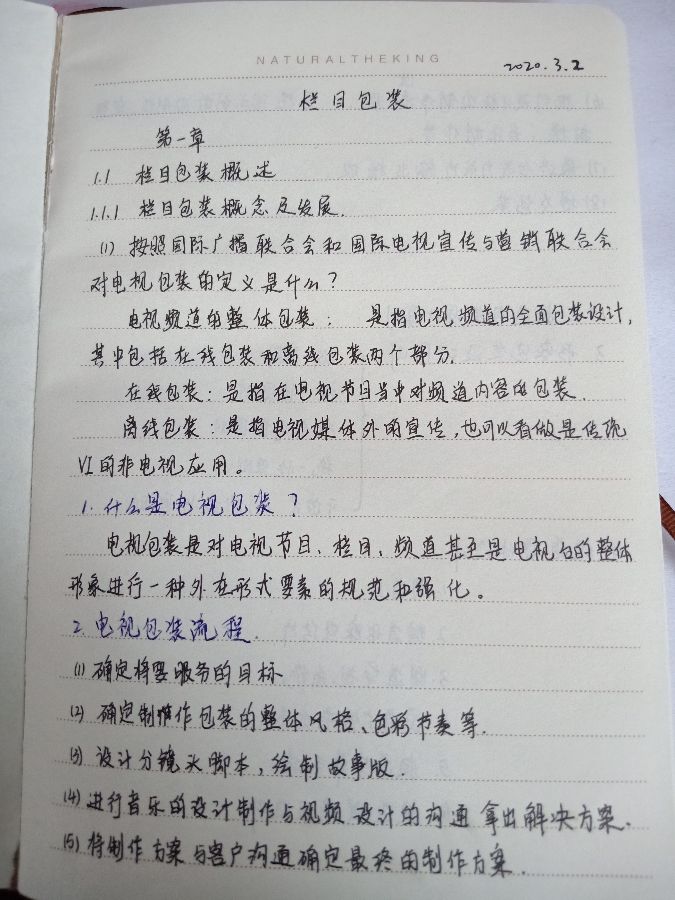 NATURALTHEKING
2020.3.2
栏目包装
第一章
1.1 栏目包装概述
1.1.1 栏目包装概念及发展.
(1) 按照国际广播联合会和国际电视宣传与营销联合会
对电视包装的定义是什么?
电视频道的整体包装: 是指电视频道的全面包装设计,
其中包括在线包装和离线包装两个部分.
在线包装:是指在电视节目当中对频道内容的包装.
离线包装:是指电视媒体外的宣传,也可以看做是传统
VI的非电视应用。
1. 什么是电视包装?
电视包装是对电视节目、栏目、频道甚至是电视台的整体
形象进行一种外在形式要素的规范和强化。
2. 电视包装流程.
(1) 确定将要服务的目标
(2) 确定制作包装的整体风格、色彩节奏等.
(3) 设计分镜头脚本,绘制故事版.
(4) 进行音乐的设计制作与视频设计的沟通拿出解决方案.
(5) 将制作方案与客户沟通确定最终的制作方案.